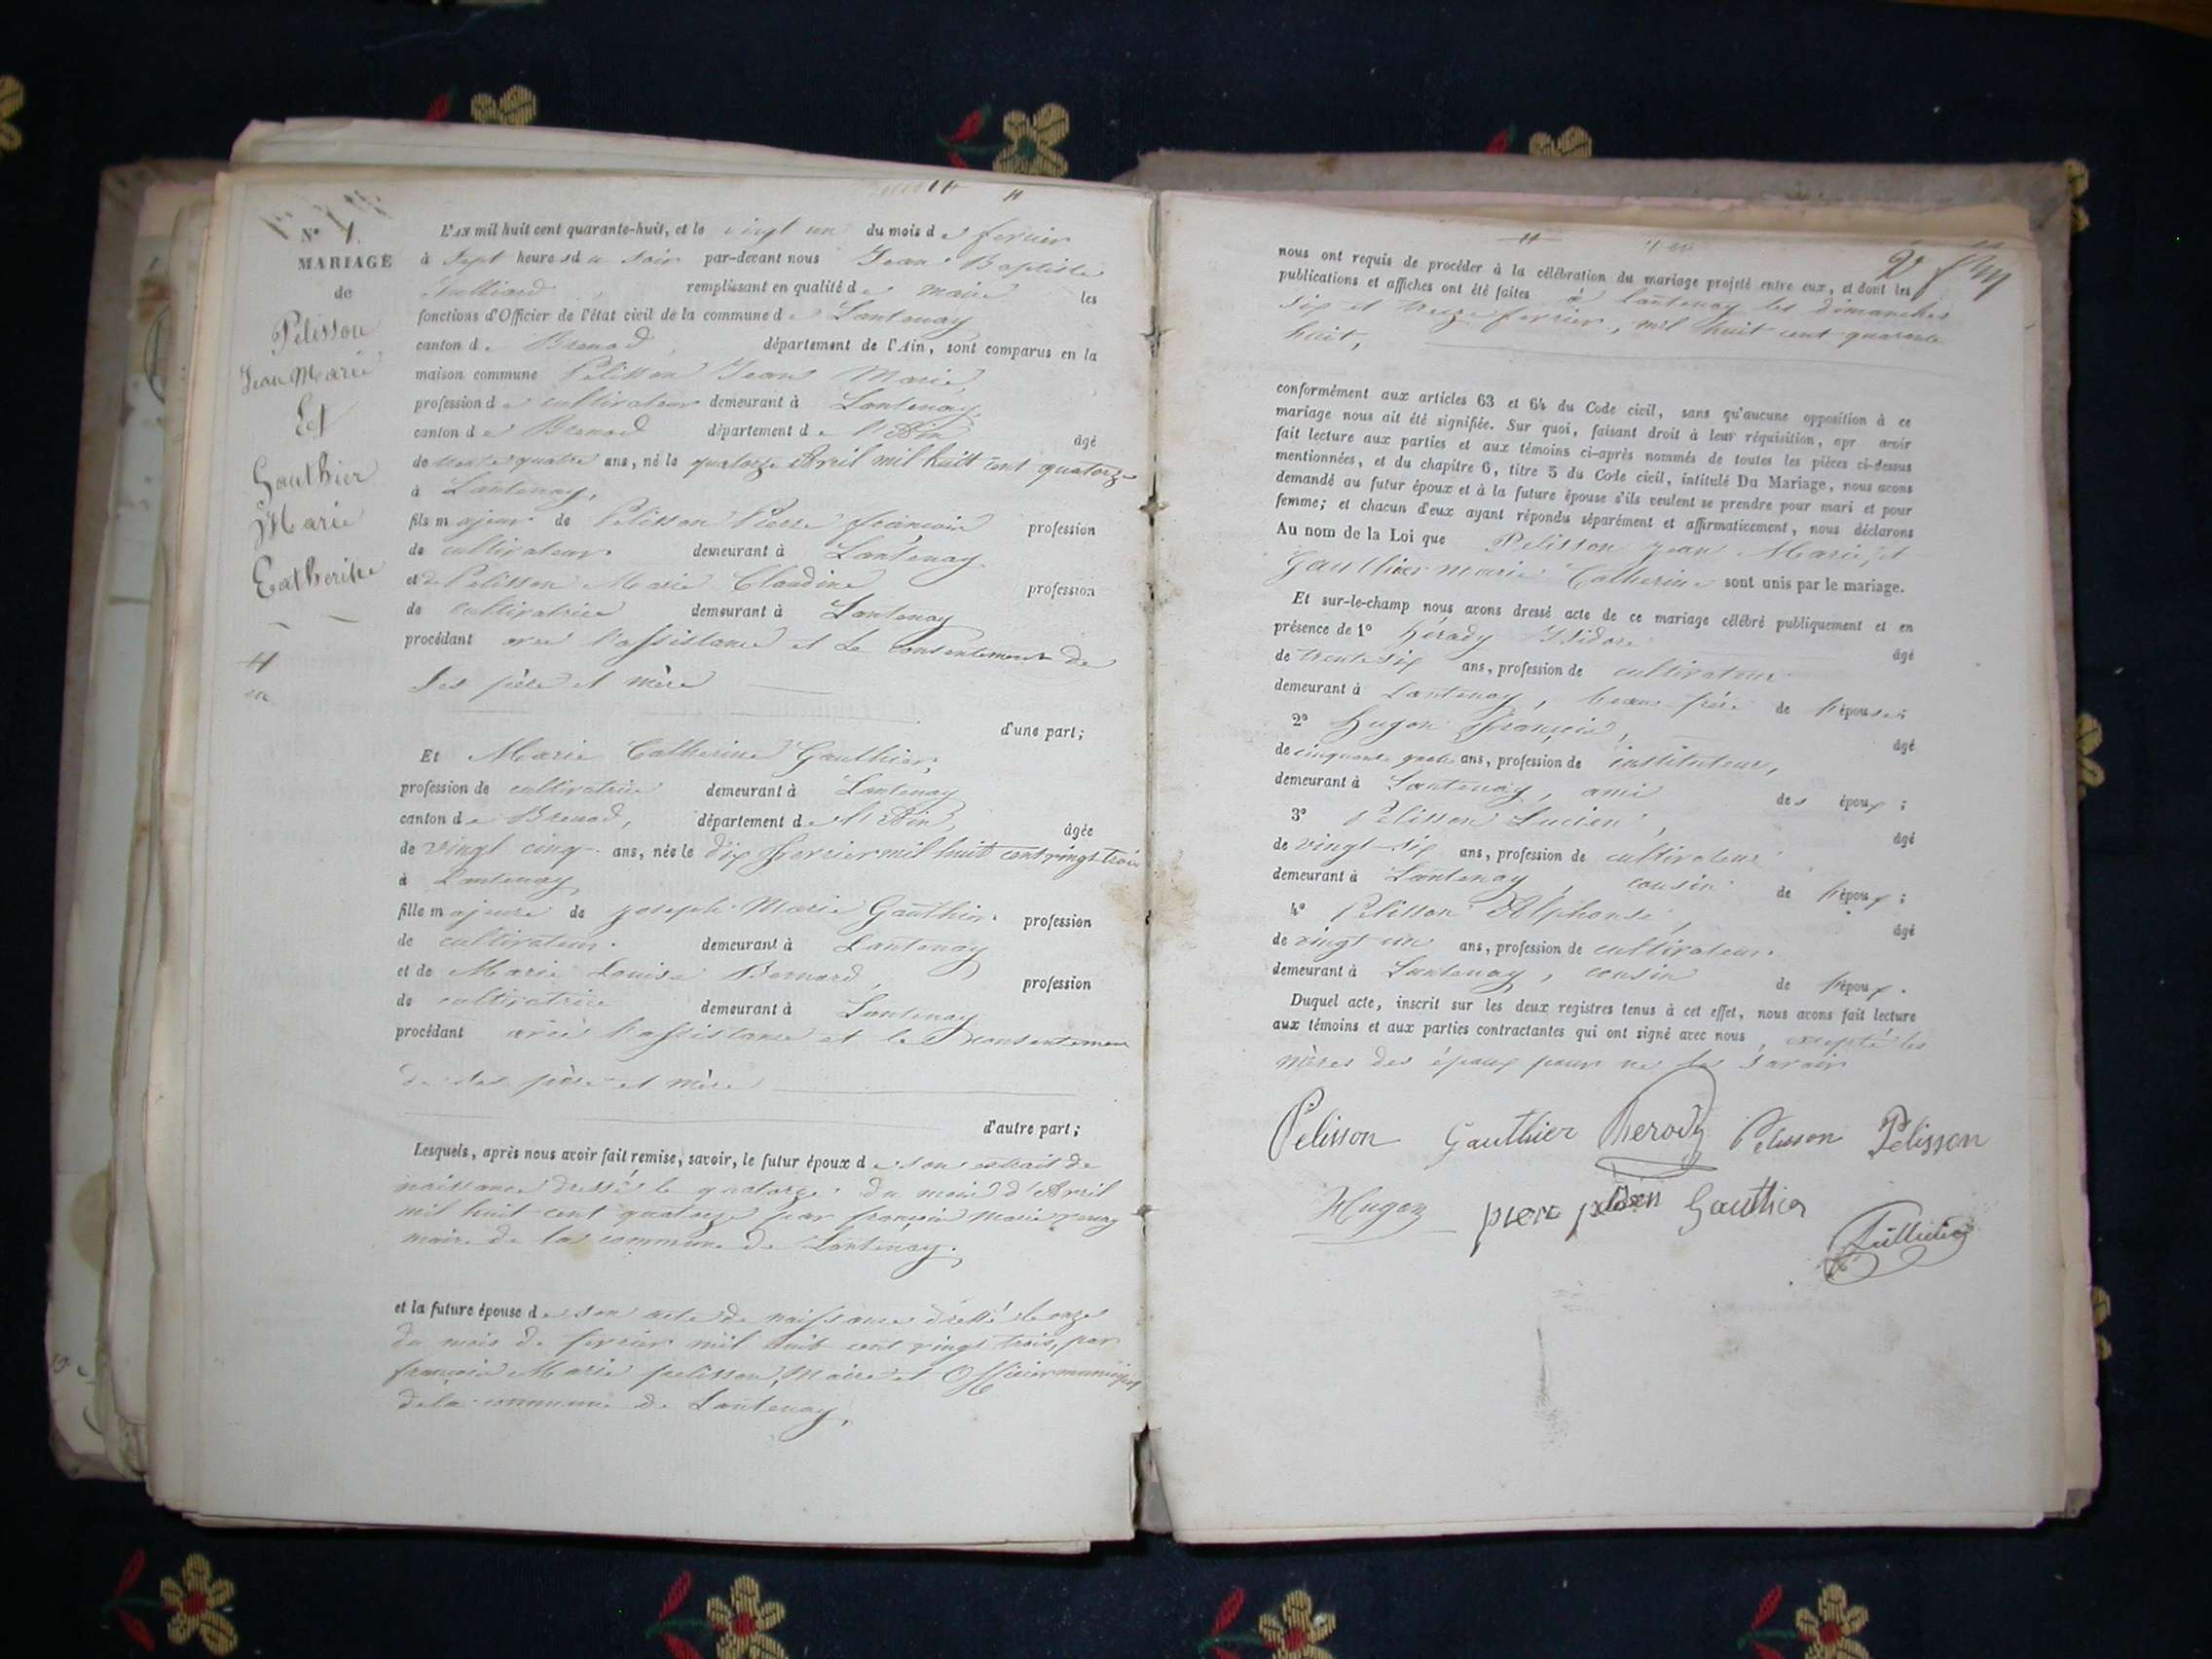 N° 1.
MARIAGE
de
Pélisson
Jean Marie
Et
Gauthier
Marie
Catherine
L'AN mil huit cent quarante-huit, et le vingt un du mois de fevrier
à Sept heures du Soir par-devant nous Jean Baptiste
remplissant en qualité de maire les
fonctions d'Officier de l'état civil de la commune de Lantenay
canton de Brenod, département de l'Ain, sont comparus en la
maison commune Pelisson Jean Marie,
profession de cultivateur demeurant à Lantenay,
canton de Brenod département de l'Ain âgé
de trente quatre ans, né le quatorze Avril mil huit cent quatorze
à Lantenay,
fils majeur de Pelisson Pierre françois profession
de cultivateur demeurant à Lantenay
et de Pelisson Marie Claudine profession
de cultivatrice demeurant à Lantenay
procédant avec l'assistance et le consentement de
Ses père et mère
d'une part;
Et Marie Catherine Gauthier,
profession de cultivatrice demeurant à Lantenay
canton de Brenod, département de l'Ain, âgée
de vingt cinq ans, née le dix fevrier mil huit cent vingt trois
à Lantenay
fille majeure de joseph Marie Gauthier profession
de cultivateur demeurant à Lantenay
et de Marie Louise Bernard, profession
de cultivatrice demeurant à Lantenay
procédant avec l'assistance et le consentement
de ses père et mère
d'autre part;
Lesquels, après nous avoir fait remise, savoir, le futur époux de son extrait de
naissance dressé le quatorze du mois d'Avril
mil huit cent quatorze par françois Marie
maire de la commune de Lantenay.
et la future épouse de son acte de naissance dressé le onze
du mois de fevrier mil huit cent vingt trois, par
françois Marie pelisson, Maire et Officier municipal
de la commune de Lantenay,
nous ont requis de procéder à la célébration du mariage projeté entre eux, et dont les
publications et affiches ont été faites à Lantenay les dimanches
six et treize fevrier, mil huit cent quarante
huit,
conformément aux articles 63 et 64 du Code civil, sans qu'aucune opposition à ce
mariage nous ait été signifiée. Sur quoi, faisant droit à leur réquisition, apr avoir
fait lecture aux parties et aux témoins ci-après nommés de toutes les pièces ci-dessus
mentionnées, et du chapitre 6, titre 5 du Code civil, intitulé Du Mariage, nous avons
demandé au futur époux et à la future épouse s'ils veulent se prendre pour mari et pour
femme; et chacun d'eux ayant répondu séparément et affirmativement, nous déclarons
Au nom de la Loi que Pelisson Jean Marie, et
Gauthier marie Catherine sont unis par le mariage.
Et sur-le-champ nous avons dressé acte de ce mariage célébré publiquement et en
présence de 1° hérody Isidore âgé
de trente six ans, profession de cultivateur
demeurant à Lantenay, beau frère de l'épouse;
2° Hugon françois, âgé
de cinquante quatre ans, profession de instituteur,
demeurant à Lantenay, ami des époux;
3° Pelisson Lucien, âgé
de vingt-six ans, profession de cultivateur
demeurant à Lantenay, cousin de l'époux;
4° Pelisson Alphonse, âgé
de vingt un ans, profession de cultivateur
demeurant à Lantenay, cousin de l'époux.
Duquel acte, inscrit sur les deux registres tenus à cet effet, nous avons fait lecture
aux témoins et aux parties contractantes qui ont signé avec nous, excepté les
mères des époux pour ne le savoir
Pelisson Gauthier herody Pelisson Pélisson
Hugon pierre pelisson Gauthier